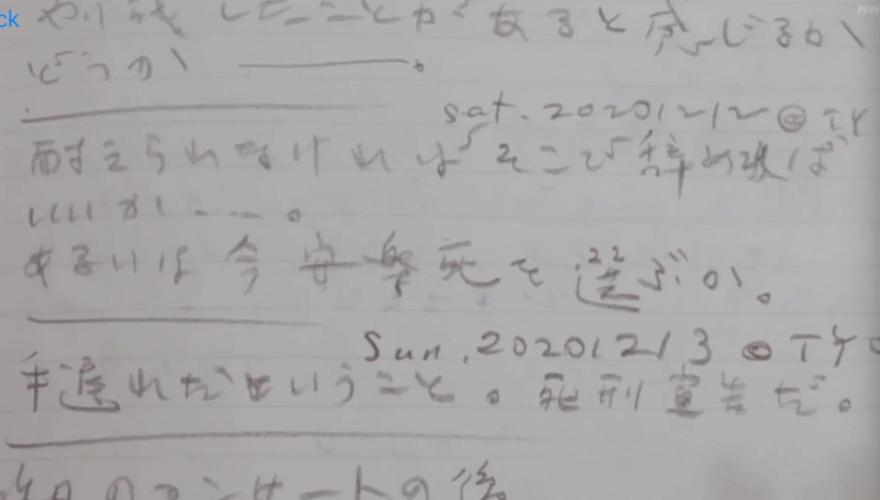 ck
NHK
やり残したことがあると感じるか
どうか ――。
Sat. 20201212 @ TY
耐えられなければそこで辞め
いいが……。
あるいは今 安楽死を選ぶか。
Sun. 20201213 @ TYO
手遅れだということ。死刑宣告だ。
のコンサートの後